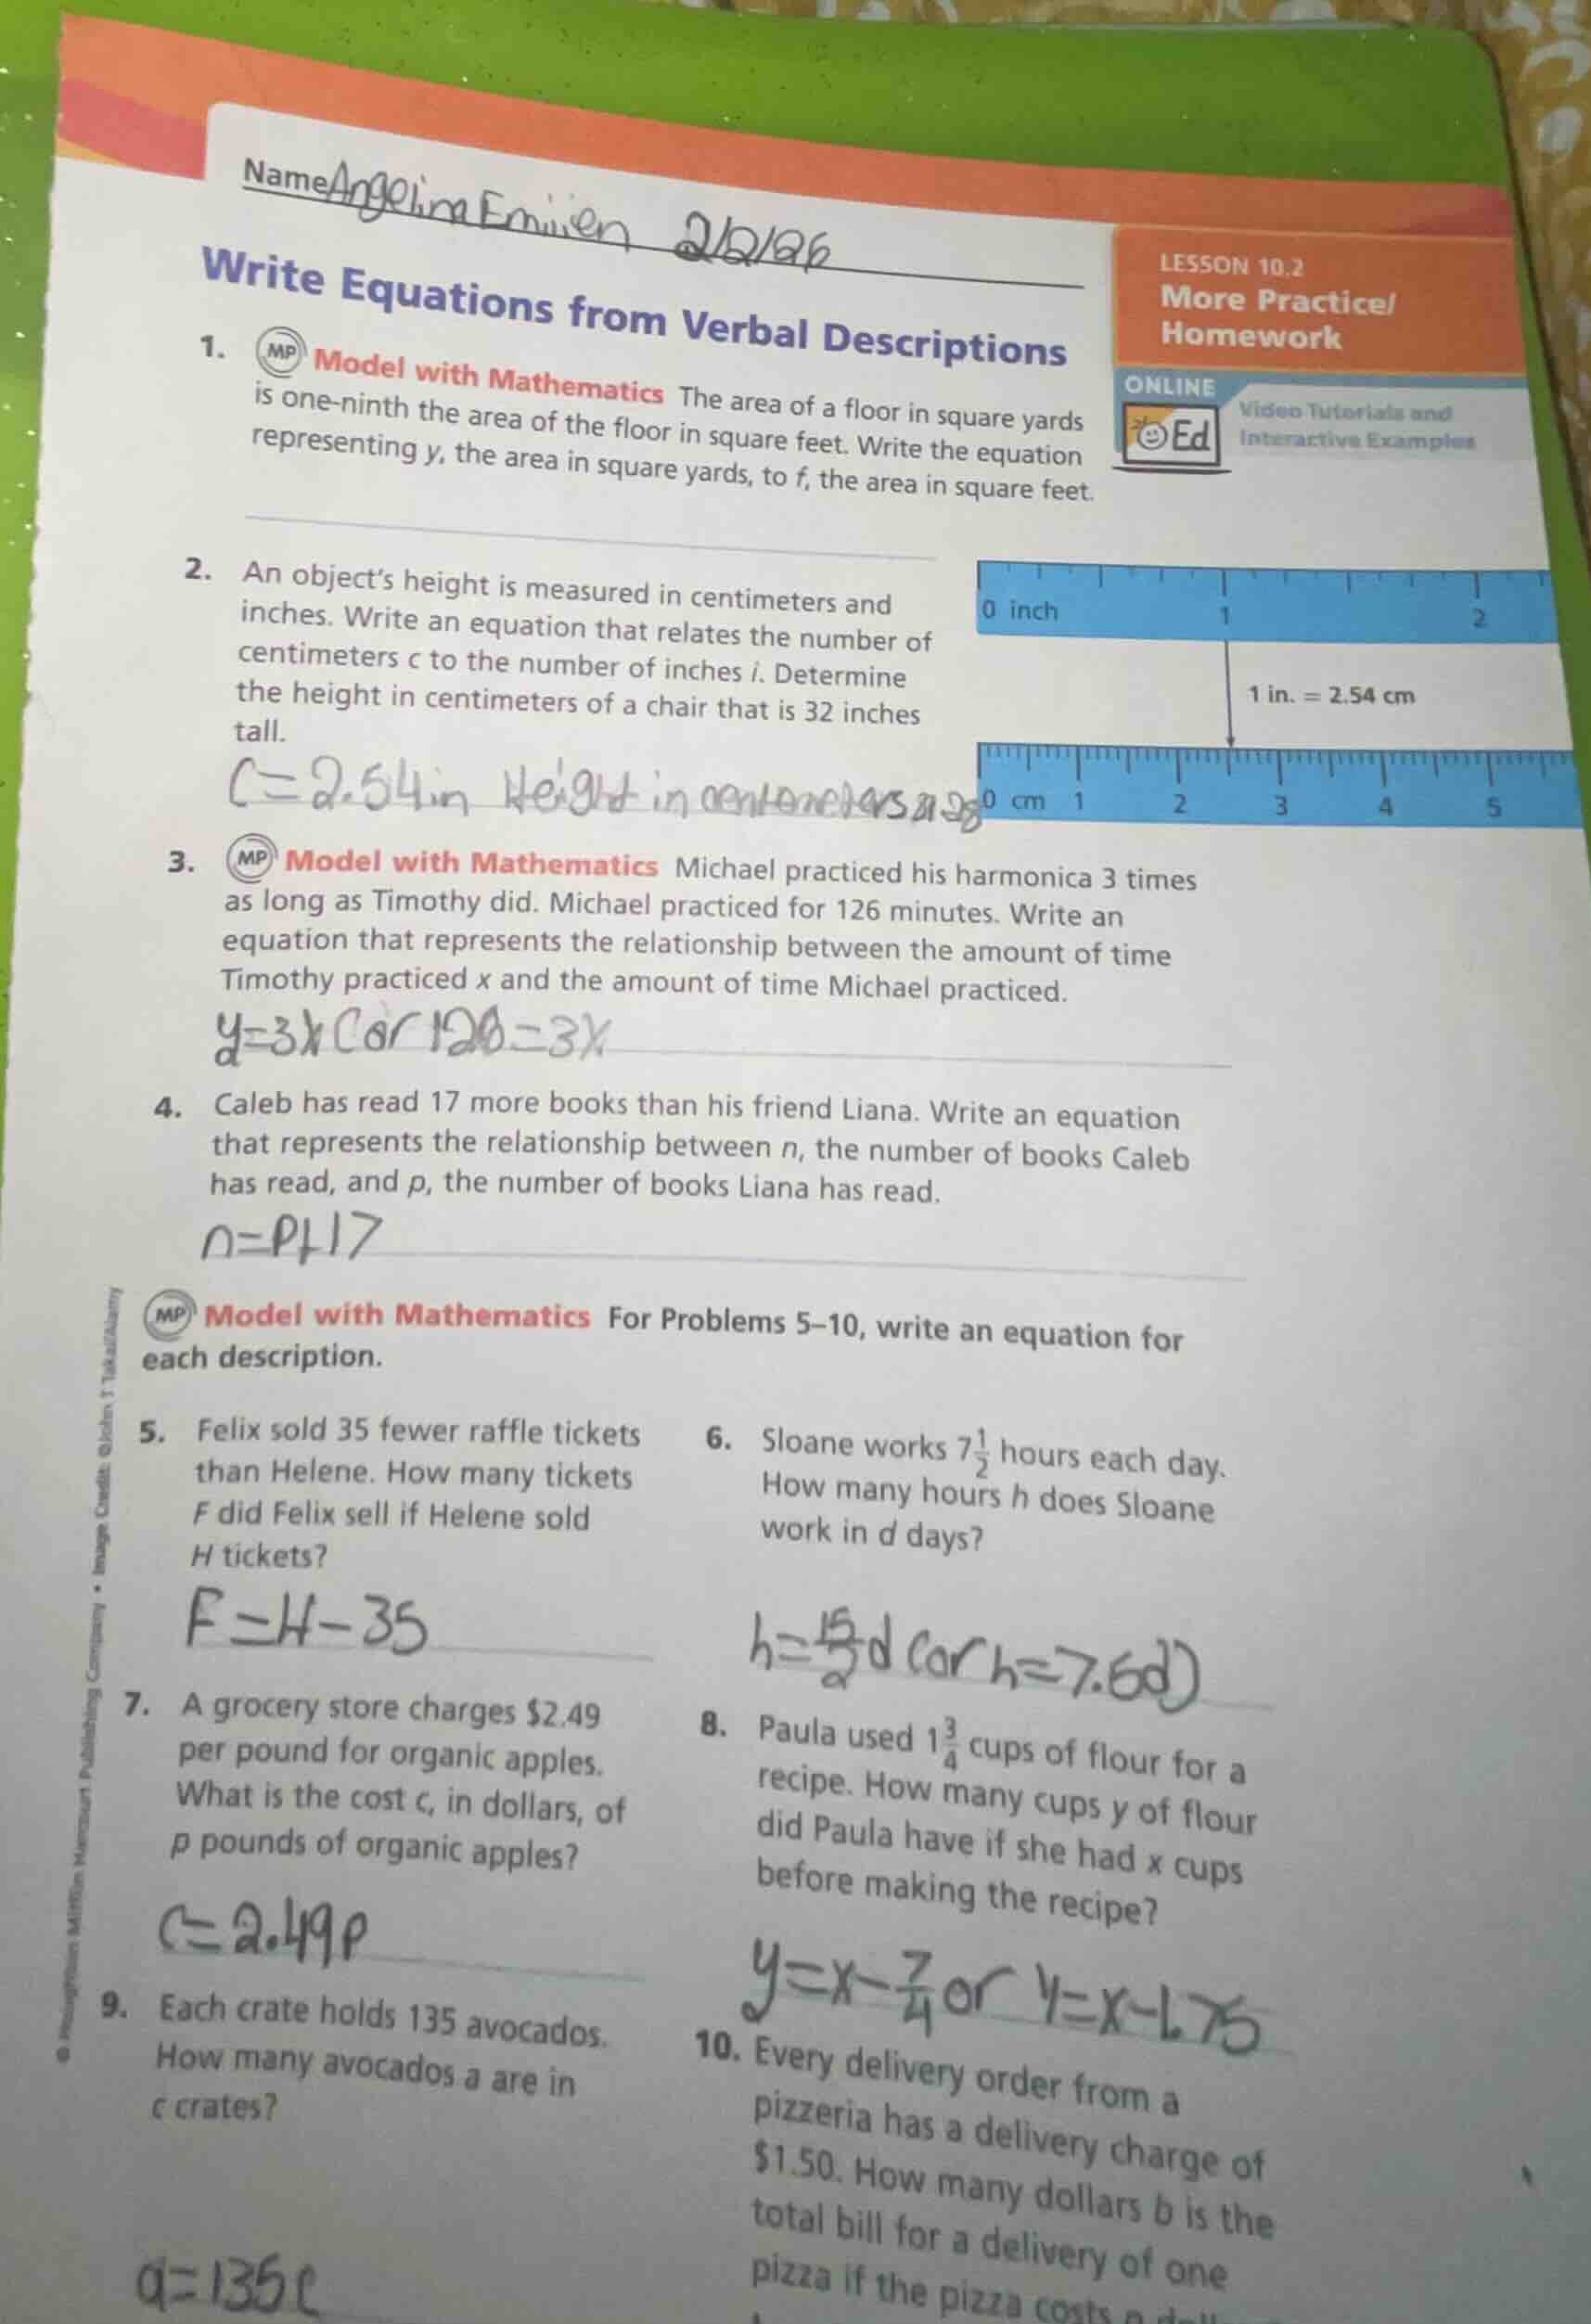 Name Angelina Emiien 2/2/26
Write Equations from Verbal Descriptions
LESSON 10.2
More Practice/
Homework
ONLINE
Ed
Video Tutorials and
Interactive Examples
1. MP Model with Mathematics The area of a floor in square yards
is one-ninth the area of the floor in square feet. Write the equation
representing y, the area in square yards, to f, the area in square feet.
2. An object's height is measured in centimeters and
inches. Write an equation that relates the number of
centimeters c to the number of inches i. Determine
the height in centimeters of a chair that is 32 inches
tall.
C=2.54in Height in centometers
0 inch 1 2
1 in. = 2.54 cm
0 cm 1 2 3 4 5
3. MP Model with Mathematics Michael practiced his harmonica 3 times
as long as Timothy did. Michael practiced for 126 minutes. Write an
equation that represents the relationship between the amount of time
Timothy practiced x and the amount of time Michael practiced.
y=3x (or 126=3x
4. Caleb has read 17 more books than his friend Liana. Write an equation
that represents the relationship between n, the number of books Caleb
has read, and p, the number of books Liana has read.
n=P+17
MP Model with Mathematics For Problems 5–10, write an equation for
each description.
5. Felix sold 35 fewer raffle tickets
than Helene. How many tickets
F did Felix sell if Helene sold
H tickets?
F=H-35
6. Sloane works 7 1/2 hours each day.
How many hours h does Sloane
work in d days?
h=15/2d (or h=7.5d)
7. A grocery store charges $2.49
per pound for organic apples.
What is the cost c, in dollars, of
p pounds of organic apples?
C=2.49p
8. Paula used 1 3/4 cups of flour for a
recipe. How many cups y of flour
did Paula have if she had x cups
before making the recipe?
y=x-7/4 or y=x-1.75
9. Each crate holds 135 avocados.
How many avocados a are in
c crates?
a=135c
10. Every delivery order from a
pizzeria has a delivery charge of
$1.50. How many dollars b is the
total bill for a delivery of one
pizza if the pizza costs
© Houghton Mifflin Harcourt Publishing Company • Image Credit: ©John T Takai/Alamy